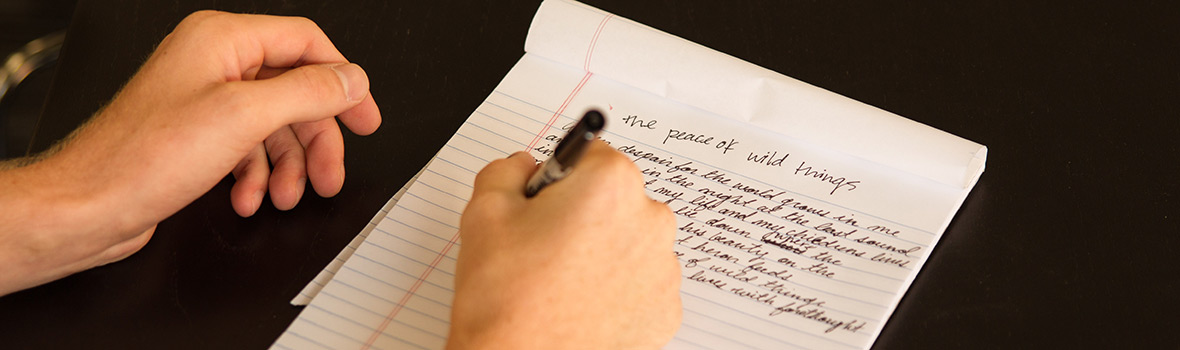 the peace of wild things
despair for the world grows in me
in the night at the last sound
my life and my childrens lives
lie down the
his beauty on the
heron feeds
of wild things
lives with forethought